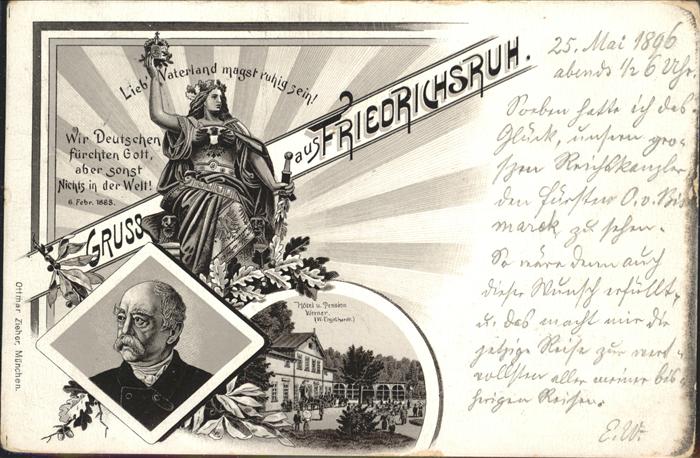 Lieb' Vaterland magst ruhig sein!
Wir Deutschen
fürchten Gott,
aber sonst
Nichts in der Welt!
6. Febr. 1888.
GRUSS
aus FRIEDRICHSRUH.
Hôtel u. Pension
Werner.
(W. Engelhardt.)
Ottmar Zieher, München.
25. Mai 1896
abends ½ 6 Uhr
Soeben hatte ich das
Glück, unsern gro-
szen Reichskanzler
den Fürsten O. v. Bis
marck, zu sehen.
So wäre denn auch
dieser Wunsch erfüllt,
u. das macht mir die
jetzige Reise zur wert-
vollsten aller meiner bis-
herigen Reisen.
E. W.